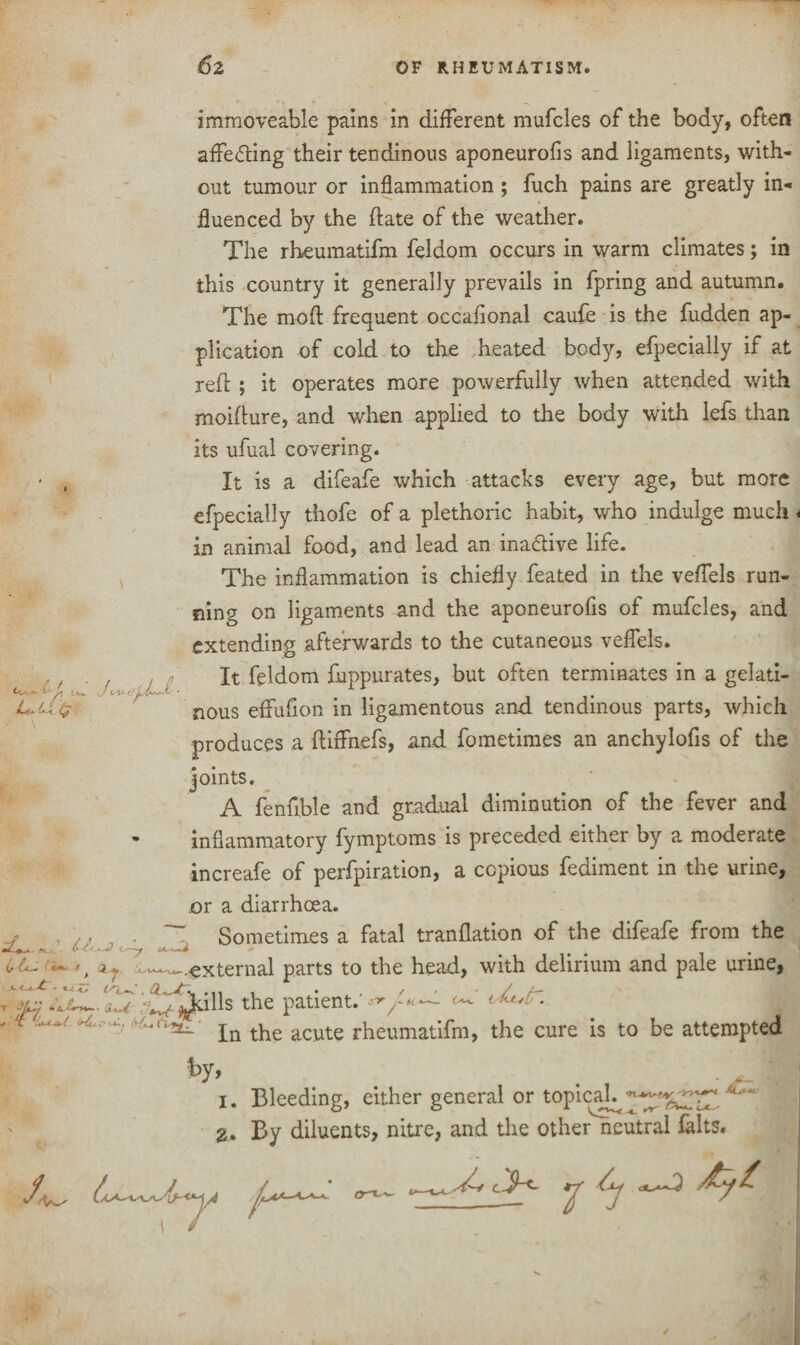 62 OF RHEUMATISM.
immoveable pains in different muſcles of the body, often
affecting their tendinous aponeuroſis and ligaments, with-
out tumour or inflammation; ſuch pains are greatly in-
fluenced by the ſtate of the weather.
The rheumatiſm ſeldom occurs in warm climates; in
this country it generally prevails in ſpring and autumn.
The moſt frequent occaſional cauſe is the ſudden ap-
plication of cold to the heated body, eſpecially if at
reſt; it operates more powerfully when attended with
moiſture, and when applied to the body with leſs than
its uſual covering.
It is a diſeaſe which attacks every age, but more
eſpecially thoſe of a plethoric habit, who indulge much
in animal food, and lead an inactive life.
The inflammation is chiefly ſeated in the veſſels run-
ning on ligaments and the aponeuroſis of muſcles, and
extending afterwards to the cutaneous veſſels.
It ſeldom ſuppurates, but often terminates in a gelati-
nous effuſion in ligamentous and tendinous parts, which
produces a ſtiffneſs, and ſometimes an anchyloſis of the
joints.
A ſenſible and gradual diminution of the fever and
inflammatory ſymptoms is preceded either by a moderate
increaſe of perſpiration, a copious ſediment in the urine,
or a diarrhœa.
Sometimes a fatal tranſlation of the diſeaſe from the
external parts to the head, with delirium and pale urine,
kills the patient.
In the acute rheumatiſm, the cure is to be attempted
by,
1. Bleeding, either general or topical.
2. By diluents, nitre, and the other neutral ſalts.